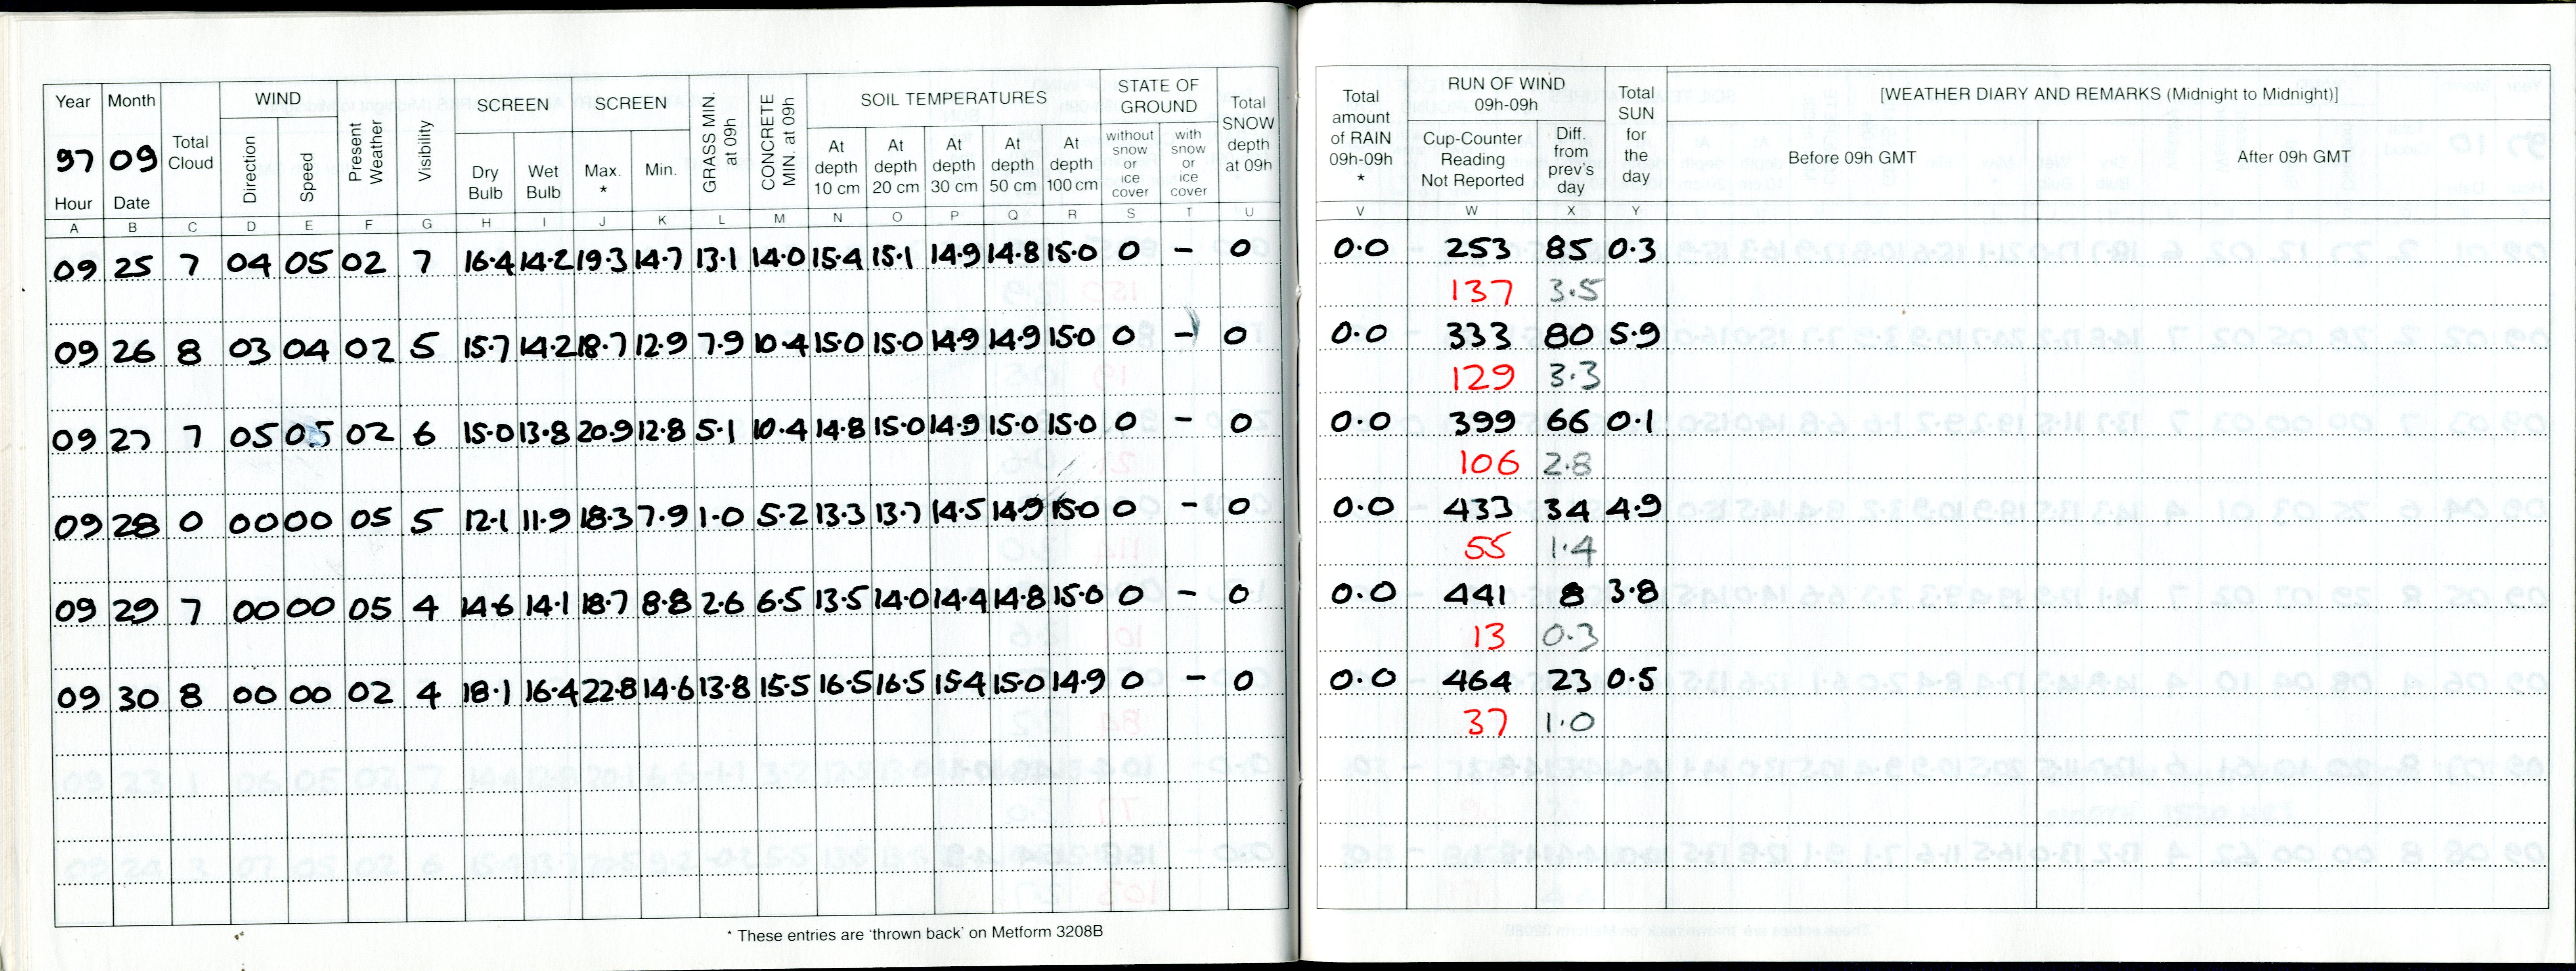 Year Month WIND SCREEN SCREEN GRASS MIN. at 09h CONCRETE MIN. at 09h SOIL TEMPERATURES STATE OF GROUND Total SNOW depth at 09h
97 09 Total Cloud Direction Speed Present Weather Visibility Dry Bulb Wet Bulb Max. * Min. At depth 10 cm At depth 20 cm At depth 30 cm At depth 50 cm At depth 100 cm without snow or ice cover with snow or ice cover
Hour Date
A B C D E F G H I J K L M N O P Q R S T U
09 25 7 04 05 02 7 16.4 14.2 19.3 14.7 13.1 14.0 15.4 15.1 14.9 14.8 15.0 0 - 0
09 26 8 03 04 02 5 15.7 14.2 18.7 12.9 7.9 10.4 15.0 15.0 14.9 14.9 15.0 0 - 0
09 27 7 05 05 02 6 15.0 13.8 20.9 12.8 5.1 10.4 14.8 15.0 14.9 15.0 15.0 0 - 0
09 28 0 00 00 05 5 12.1 11.9 18.3 7.9 1.0 5.2 13.3 13.7 14.5 14.9 15.0 0 - 0
09 29 7 00 00 05 4 14.6 14.1 18.7 8.8 2.6 6.5 13.5 14.0 14.4 14.8 15.0 0 - 0
09 30 8 00 00 02 4 18.1 16.4 22.8 14.6 13.8 15.5 16.5 16.5 15.4 15.0 14.9 0 - 0
* These entries are 'thrown back' on Metform 3208B
Total amount of RAIN 09h-09h * RUN OF WIND 09h-09h Total SUN for the day [WEATHER DIARY AND REMARKS (Midnight to Midnight)]
Cup-Counter Reading Not Reported Diff. from prev's day Before 09h GMT After 09h GMT
V W X Y
0.0 253 85 0.3
137 3.5
0.0 333 80 5.9
129 3.3
0.0 399 66 0.1
106 2.8
0.0 433 34 4.9
55 1.4
0.0 441 8 3.8
13 0.3
0.0 464 23 0.5
37 1.0